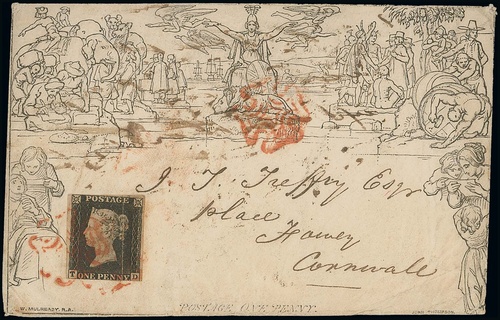 POSTAGE
ONE PENNY
T D
J. T. Treffry Esqr
Place
Fowey
Cornwall
W. MULREADY. R.A.
POSTAGE ONE PENNY.
JOHN THOMPSON